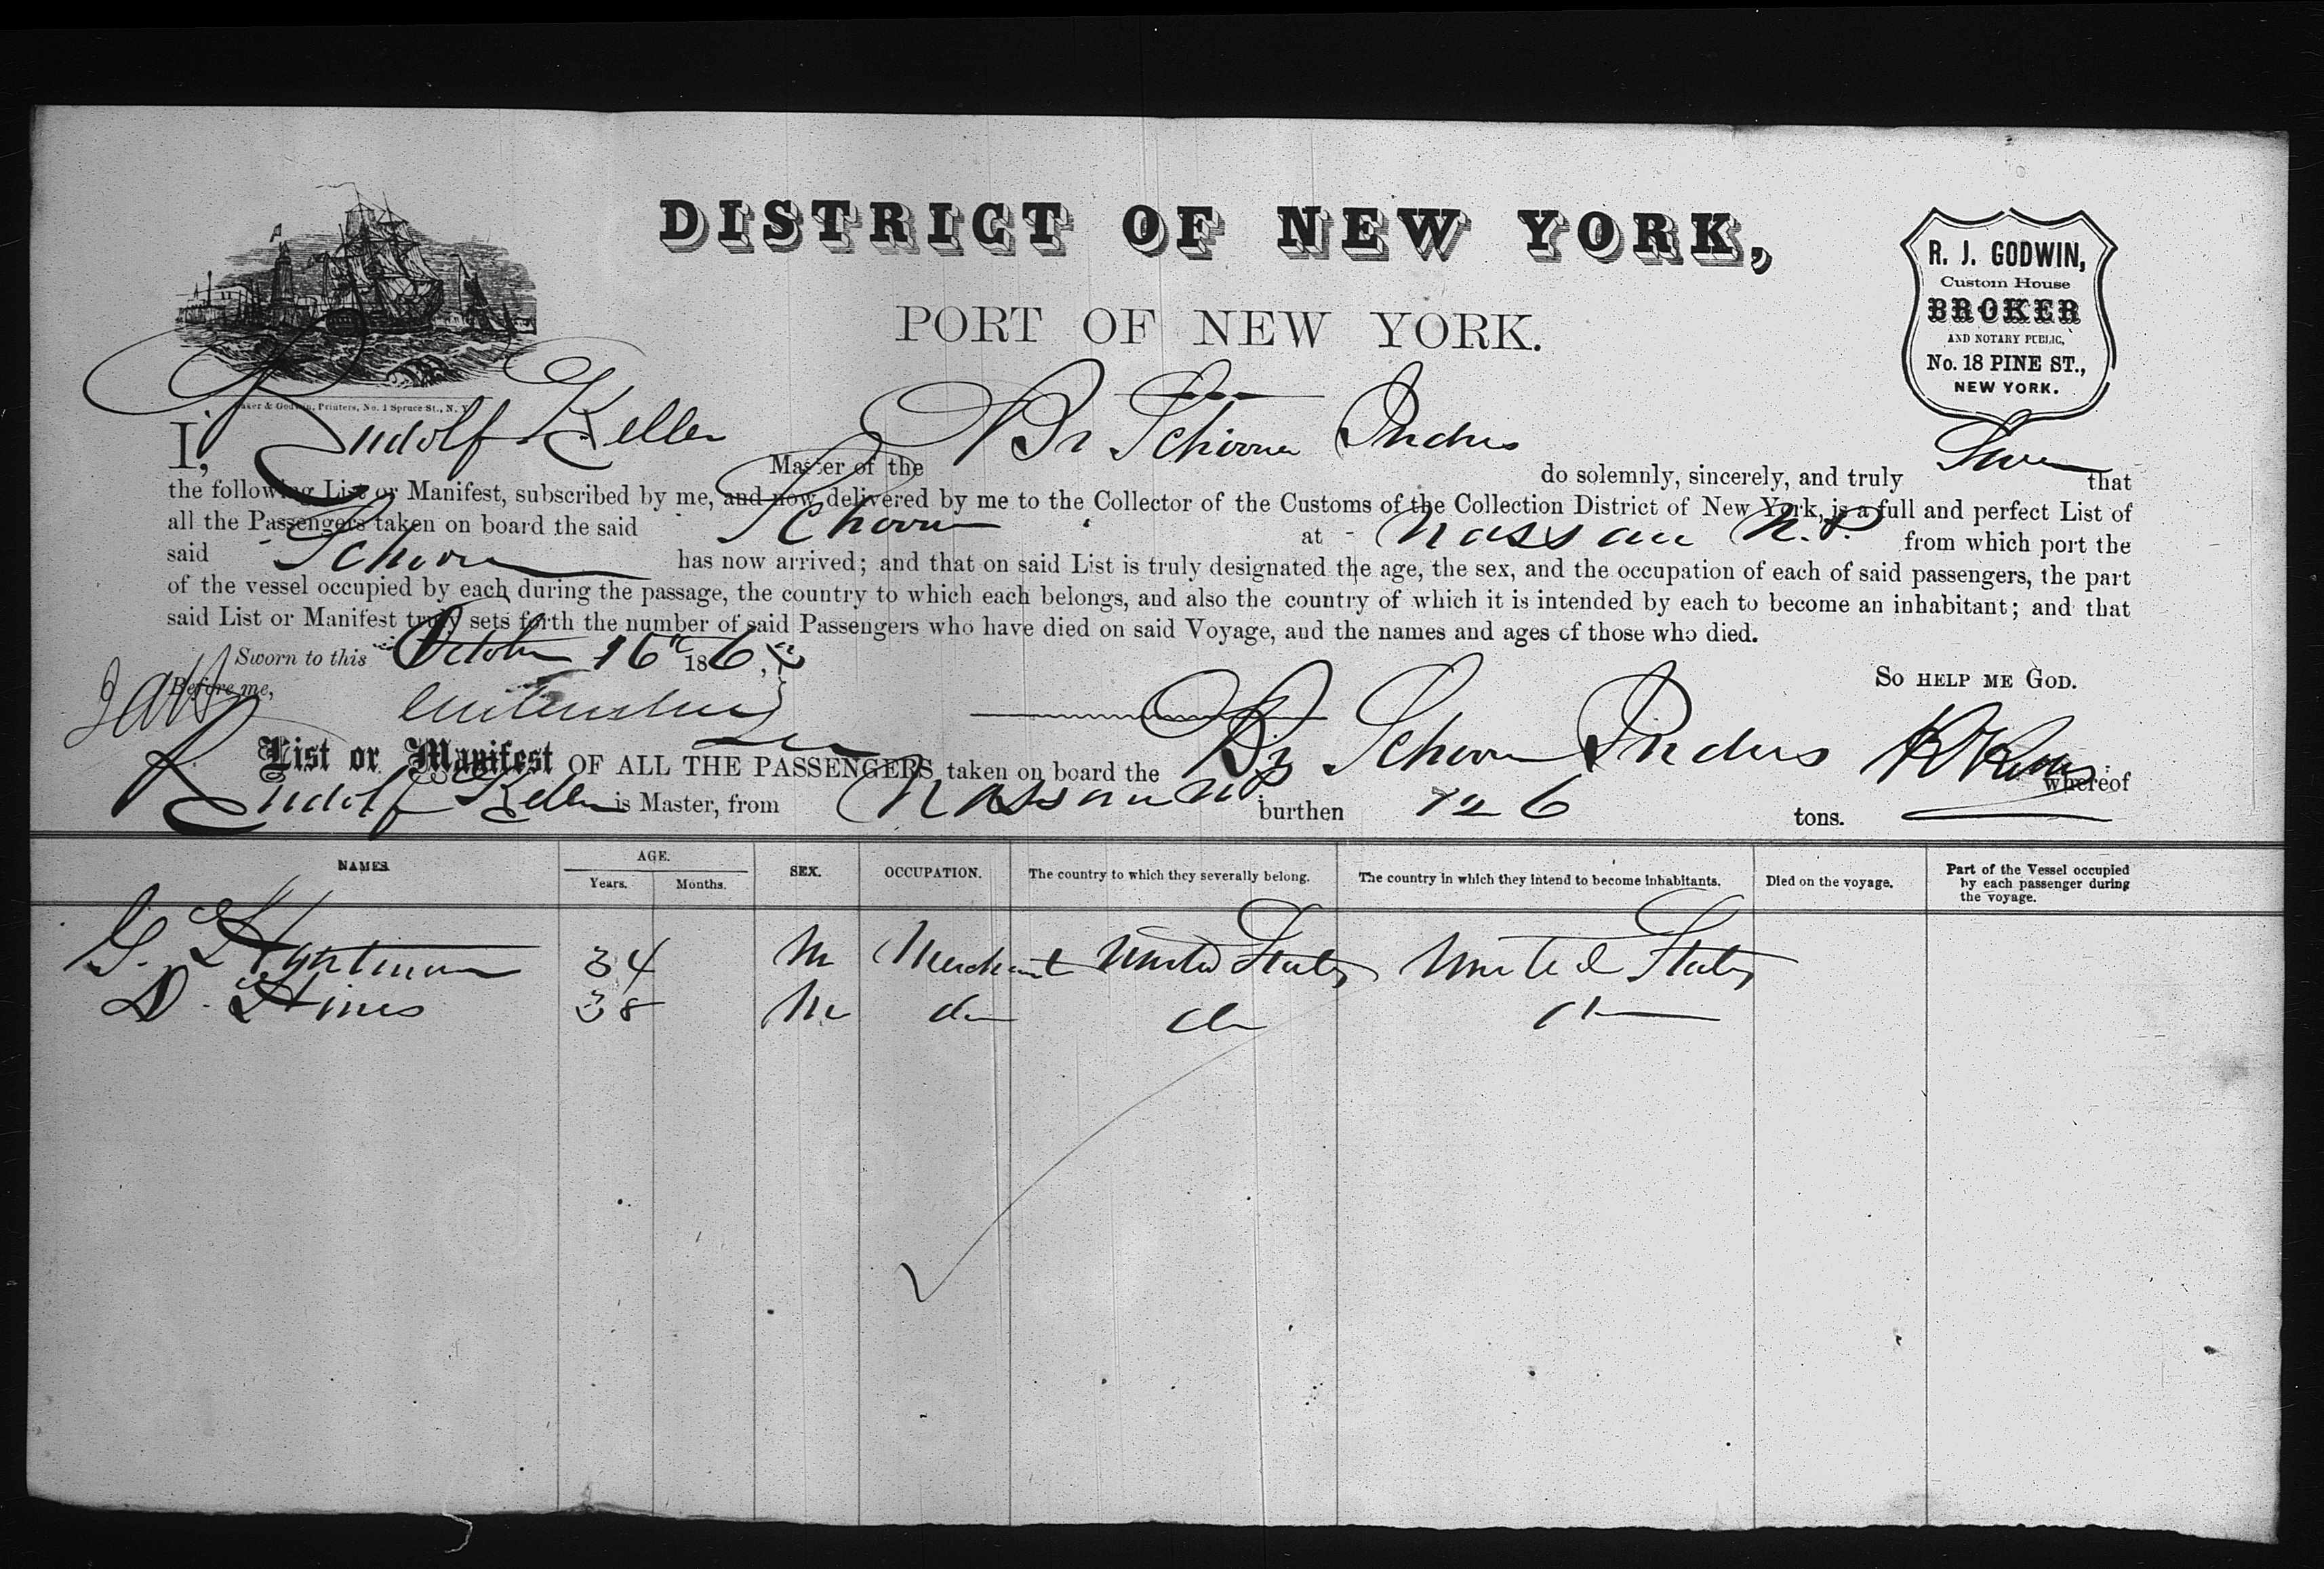 DISTRICT OF NEW YORK,
PORT OF NEW YORK.
R. J. GODWIN,
Custom House
BROKER
AND NOTARY PUBLIC,
No. 18 PINE ST.,
NEW YORK.
Baker & Godwin, Printers, No. 1 Spruce St., N. Y.
I, Rudolf Keller Master of the Br Schooner Indus do solemnly, sincerely, and truly Swear that
the following List or Manifest, subscribed by me, and now delivered by me to the Collector of the Customs of the Collection District of New York, is a full and perfect List of
all the Passengers taken on board the said Schooner at Nassau N.P. from which port the
said Schooner has now arrived; and that on said List is truly designated the age, the sex, and the occupation of each of said passengers, the part
of the vessel occupied by each during the passage, the country to which each belongs, and also the country of which it is intended by each to become an inhabitant; and that
said List or Manifest truly sets forth the number of said Passengers who have died on said Voyage, and the names and ages of those who died.
Sworn to this October 16th 186
So HELP ME GOD.
Before me,
List or Manifest OF ALL THE PASSENGERS taken on board the Br Schooner Indus whereof
Rudolf Keller is Master, from Nassau NP burthen 126 tons.
NAMES AGE. SEX. OCCUPATION. The country to which they severally belong. The country in which they intend to become inhabitants. Died on the voyage. Part of the Vessel occupied by each passenger during the voyage.
Years. Months.
G. 34 M Merchant United States United States
D. Hines 38 M do do do